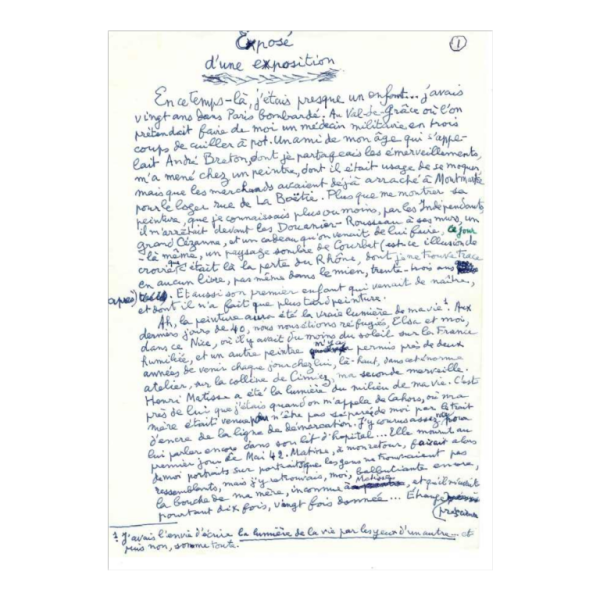 Exposé
d'une exposition
1
En ce temps-là, j'étais presque un enfant... j'avais
vingt ans dans Paris bombardé. Au Val-de-Grâce où l'on
prétendait faire de moi un médecin militaire en trois
coups de cuiller à pot. Un ami de mon âge qui s'appe-
lait André Breton, dont je partageais les émerveillements,
m'a mené chez un peintre, dont il était usage de se moquer,
mais que les marchands avaient déjà arraché à Montmartre
pour le loger rue de La Boëtie. Plus que me montrer sa
peinture, que je connaissais plus ou moins, par les Indépendants
il m'arrêtait devant les Douanier-Rousseau à ses murs, un
grand Cézanne, et un cadeau qu'on venait de lui faire, ce jour
là même, un paysage sombre de Courbet (est-ce illusion de
croire que c'était là la perte du Rhône, dont je ne trouve trace
en aucun livre, pas même dans le mien, trente-trois ans
après). Et aussi son premier enfant qui venait de naître,
et dont il n'a fait que plus tard peinture.
Ah, la peinture aura été la vraie lumière de ma vie¹. Aux
derniers jours de 40, nous nous étions réfugiés, Elsa et moi,
dans ce Nice, où il y avait du moins du soleil sur la France
humiliée, et un autre peintre m'y a permis près de deux
années de venir chaque jour chez lui, là-haut, dans cet énorme
atelier, sur la colline de Cimiez, ma seconde merveille.
Henri Matisse a été la lumière du milieu de ma vie. C'est
près de lui que j'étais quand on m'appela de Cahors, où ma
mère était venue n'être pas séparée de moi par le trait
d'encre de la ligne de démarcation. J'y courus assez pour
lui parler encore dans son lit d'hôpital... Elle mourut au
premier jour de Mai 42. Matisse, à mon retour, faisait alors
de moi portraits sur portraits que les gens ne trouvaient pas
ressemblants, mais j'y retrouvais, moi, balbutiante encore,
la bouche de ma mère, inconnue à Matisse, et qu'il m'avait
pourtant dix fois, vingt fois donnée... Étrange
presque
¹ J'avais l'envie d'écrire la lumière de la vie par les yeux d'un autre... et
puis non, somme toute.